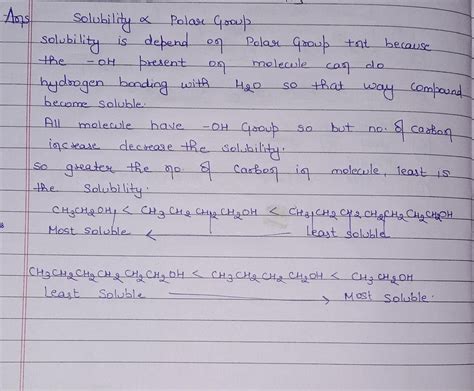 Ans Solubility ∝ Polar Group
solubility is depend on Polar Group tnt because
the -OH present on molecule can do
hydrogen bonding with H2O so that way compound
become soluble.
All molecule have -OH Group so but no. of carbon
increase decrease the solubility.
so greater the no. of carbon in molecule, least is
the solubility.
CH3CH2OH < CH3CH2CH2CH2OH < CH3CH2CH2CH2CH2CH2OH
Most soluble least soluble
CH3CH2CH2CH2CH2CH2OH < CH3CH2CH2CH2OH < CH3CH2OH
Least Soluble Most Soluble.